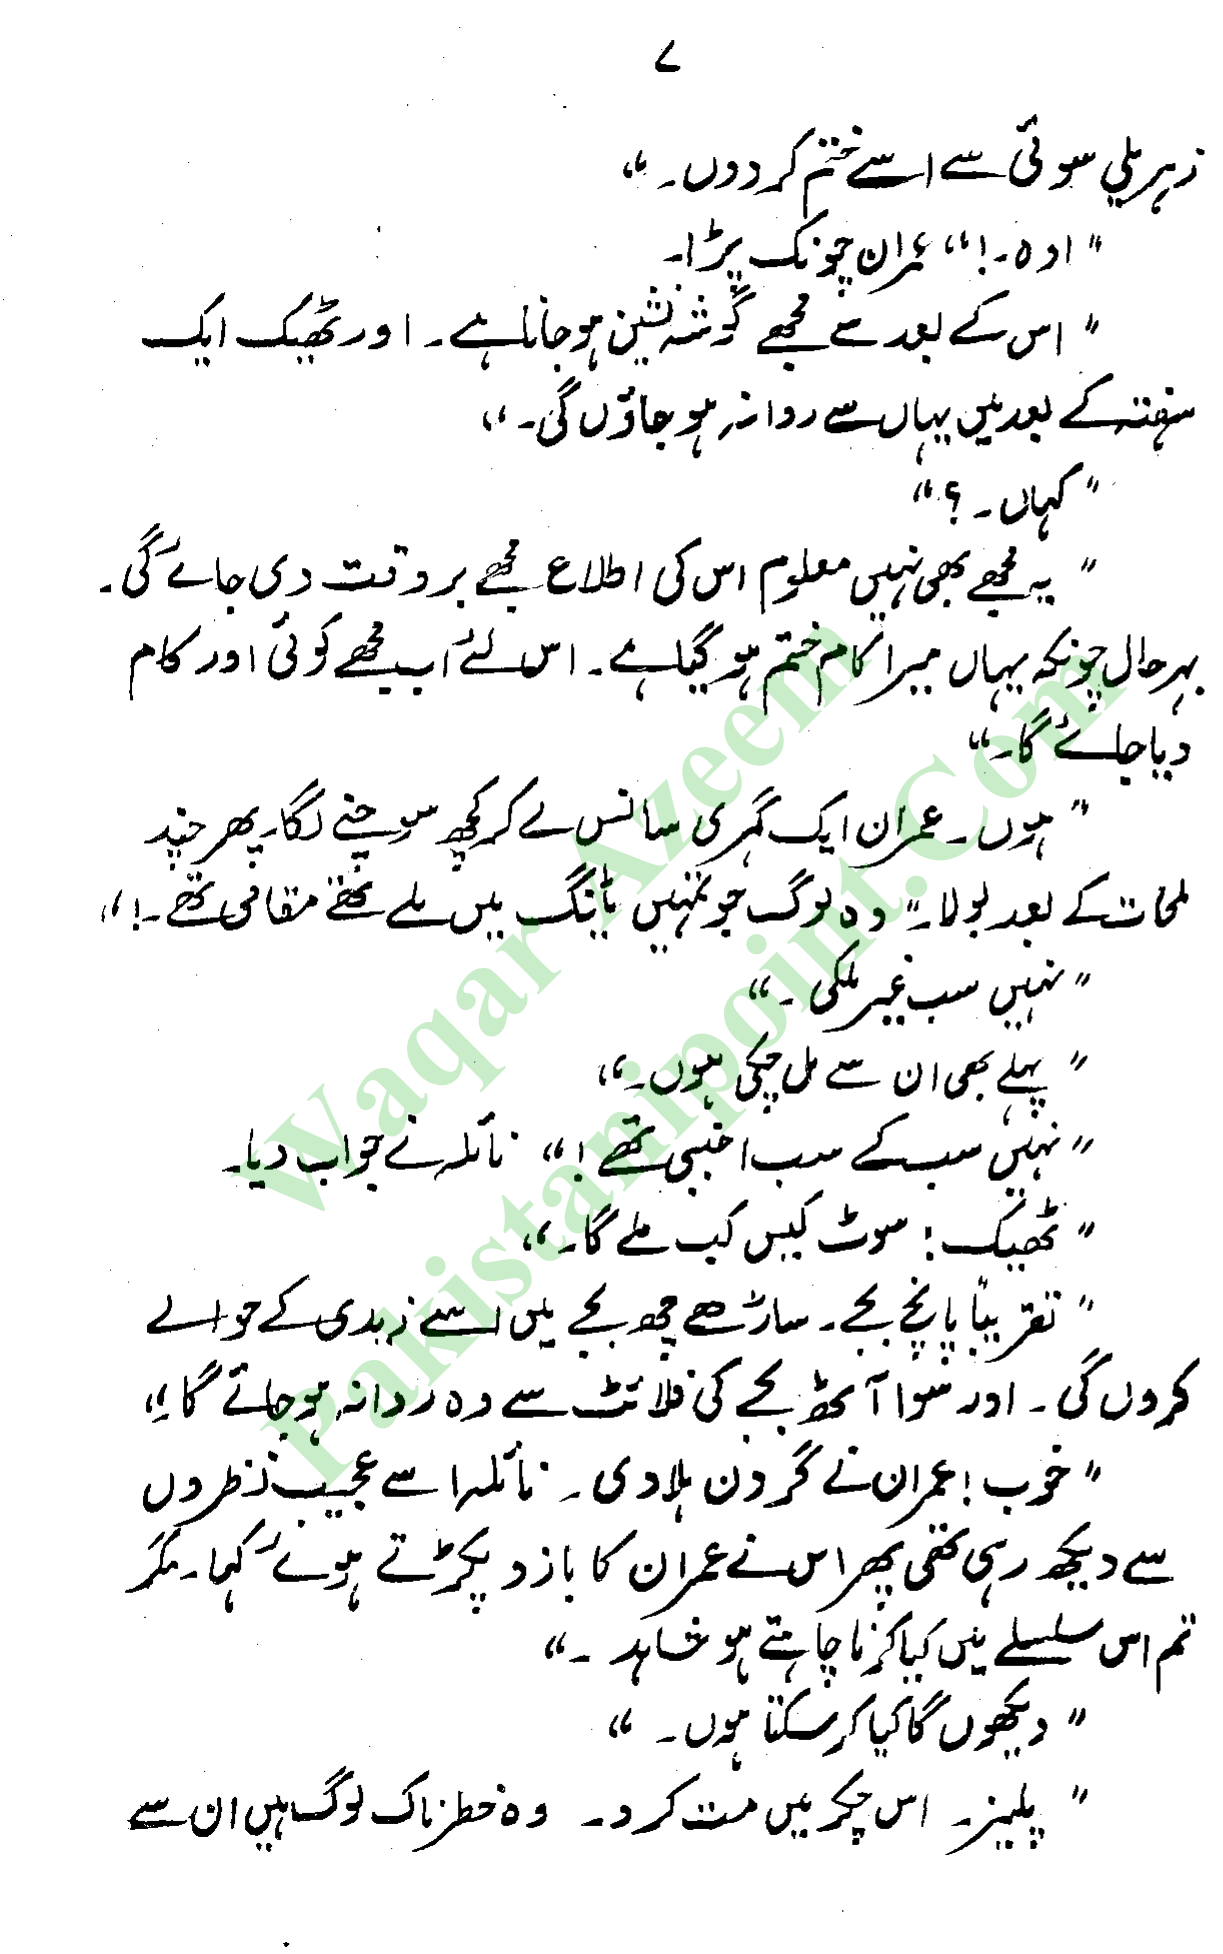 ۷
زہریلی سوئی سے اسے ختم کر دوں۔“
”اوہ۔!“ عمران چونک پڑا۔
”اس کے بعد سے مجھے گوشہ نشین ہو جانا ہے۔ اور ٹھیک ایک
ہفتہ کے بعد میں یہاں سے روانہ ہو جاؤں گی۔“
”کہاں۔؟“
”یہ مجھے بھی نہیں معلوم اس کی اطلاع مجھے بر وقت دی جائے گی۔
بہر حال چونکہ یہاں میرا کام ختم ہو گیا ہے۔ اس لئے اب مجھے کوئی اور کام
دیا جائے گا۔“
”ہوں۔ عمران ایک گہری سانس لے کر کچھ سوچنے لگا۔ پھر چند
لمحات کے بعد بولا۔ ”وہ لوگ جو تمہیں ٹانگ میں ملے تھے مقامی تھے۔!“
”نہیں سب غیر ملکی۔“
”پہلے بھی ان سے مل چکی ہوں۔“
”نہیں سب کے سب اجنبی تھے!“ نائلہ نے جواب دیا۔
”ٹھیک: سوٹ کیس کب ملے گا۔“
”تقریباً پانچ بجے۔ ساڑھے چھ بجے میں اسے زبدی کے حوالے
کروں گی۔ اور سوا آٹھ بجے کی فلائٹ سے وہ روانہ ہو جائے گا۔“
”خوب! عمران نے گردن ہلا دی۔ نائلہ اسے عجیب نظروں
سے دیکھ رہی تھی پھر اس نے عمران کا بازو پکڑتے ہوئے کہا۔ مگر
تم اس سلسلے میں کیا کرنا چاہتے ہو شاہد۔“
”دیکھوں گا کیا کر سکتا ہوں۔“
”پلیز۔ اس چکر میں مت کرو۔ وہ خطرناک لوگ ہیں ان سے
Waqar Azeem
Pakistanipoint.Com